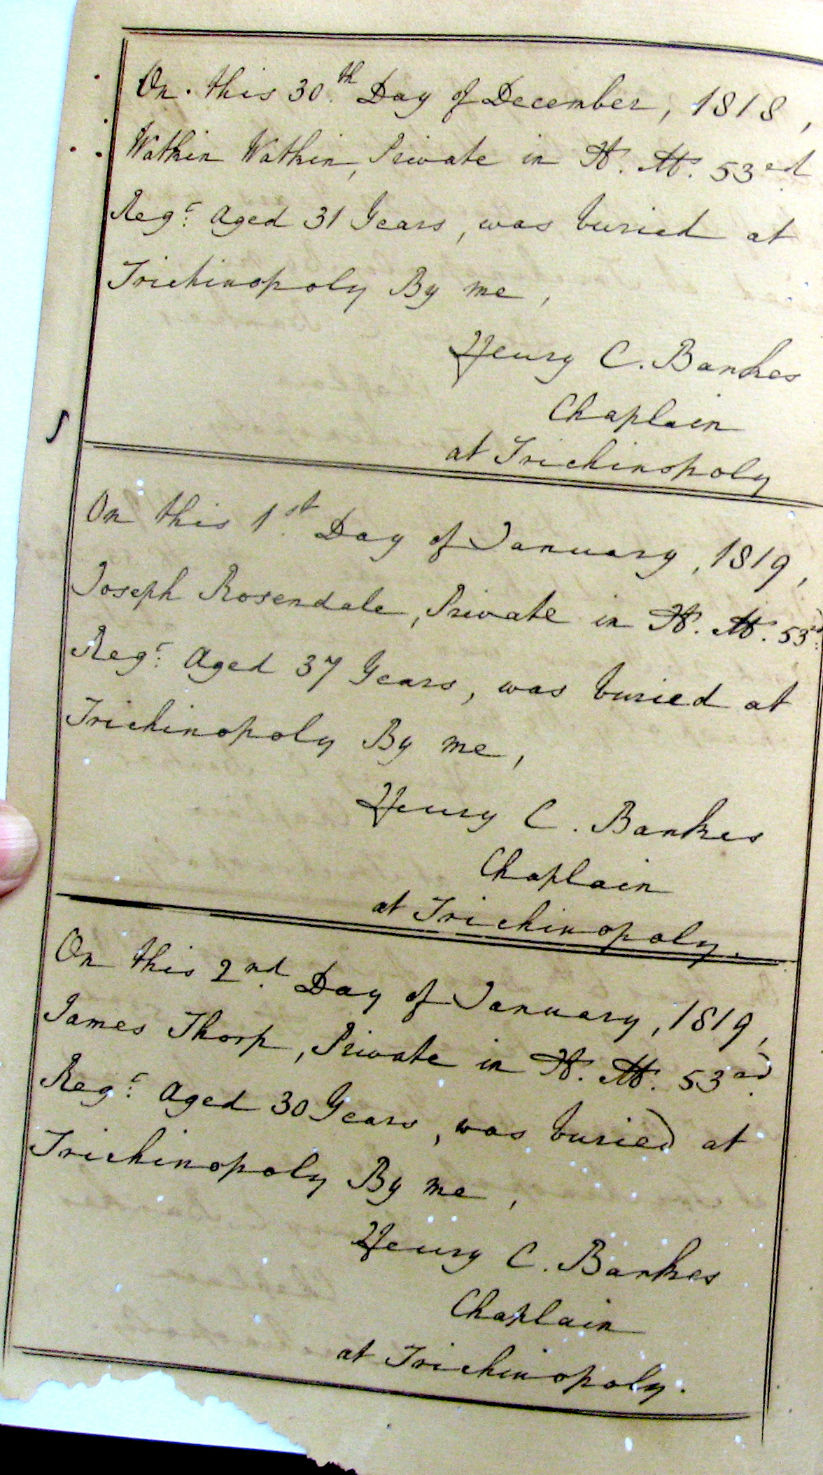 On this 30th Day of December, 1818,
Wathin Wathin, Private in H. M. 53rd
Regt Aged 31 Years, was buried at
Trichinopoly By me,
Henry C. Bankes
Chaplain
at Trichinopoly
On this 1st Day of January, 1819,
Joseph Rosendale, Private in H. M. 53rd
Regt Aged 37 Years, was buried at
Trichinopoly By me,
Henry C. Bankes
Chaplain
at Trichinopoly.
On this 2nd Day of January, 1819,
James Thorp, Private in H. M. 53rd
Regt Aged 30 Years, was buried at
Trichinopoly By me,
Henry C. Bankes
Chaplain
at Trichinopoly.